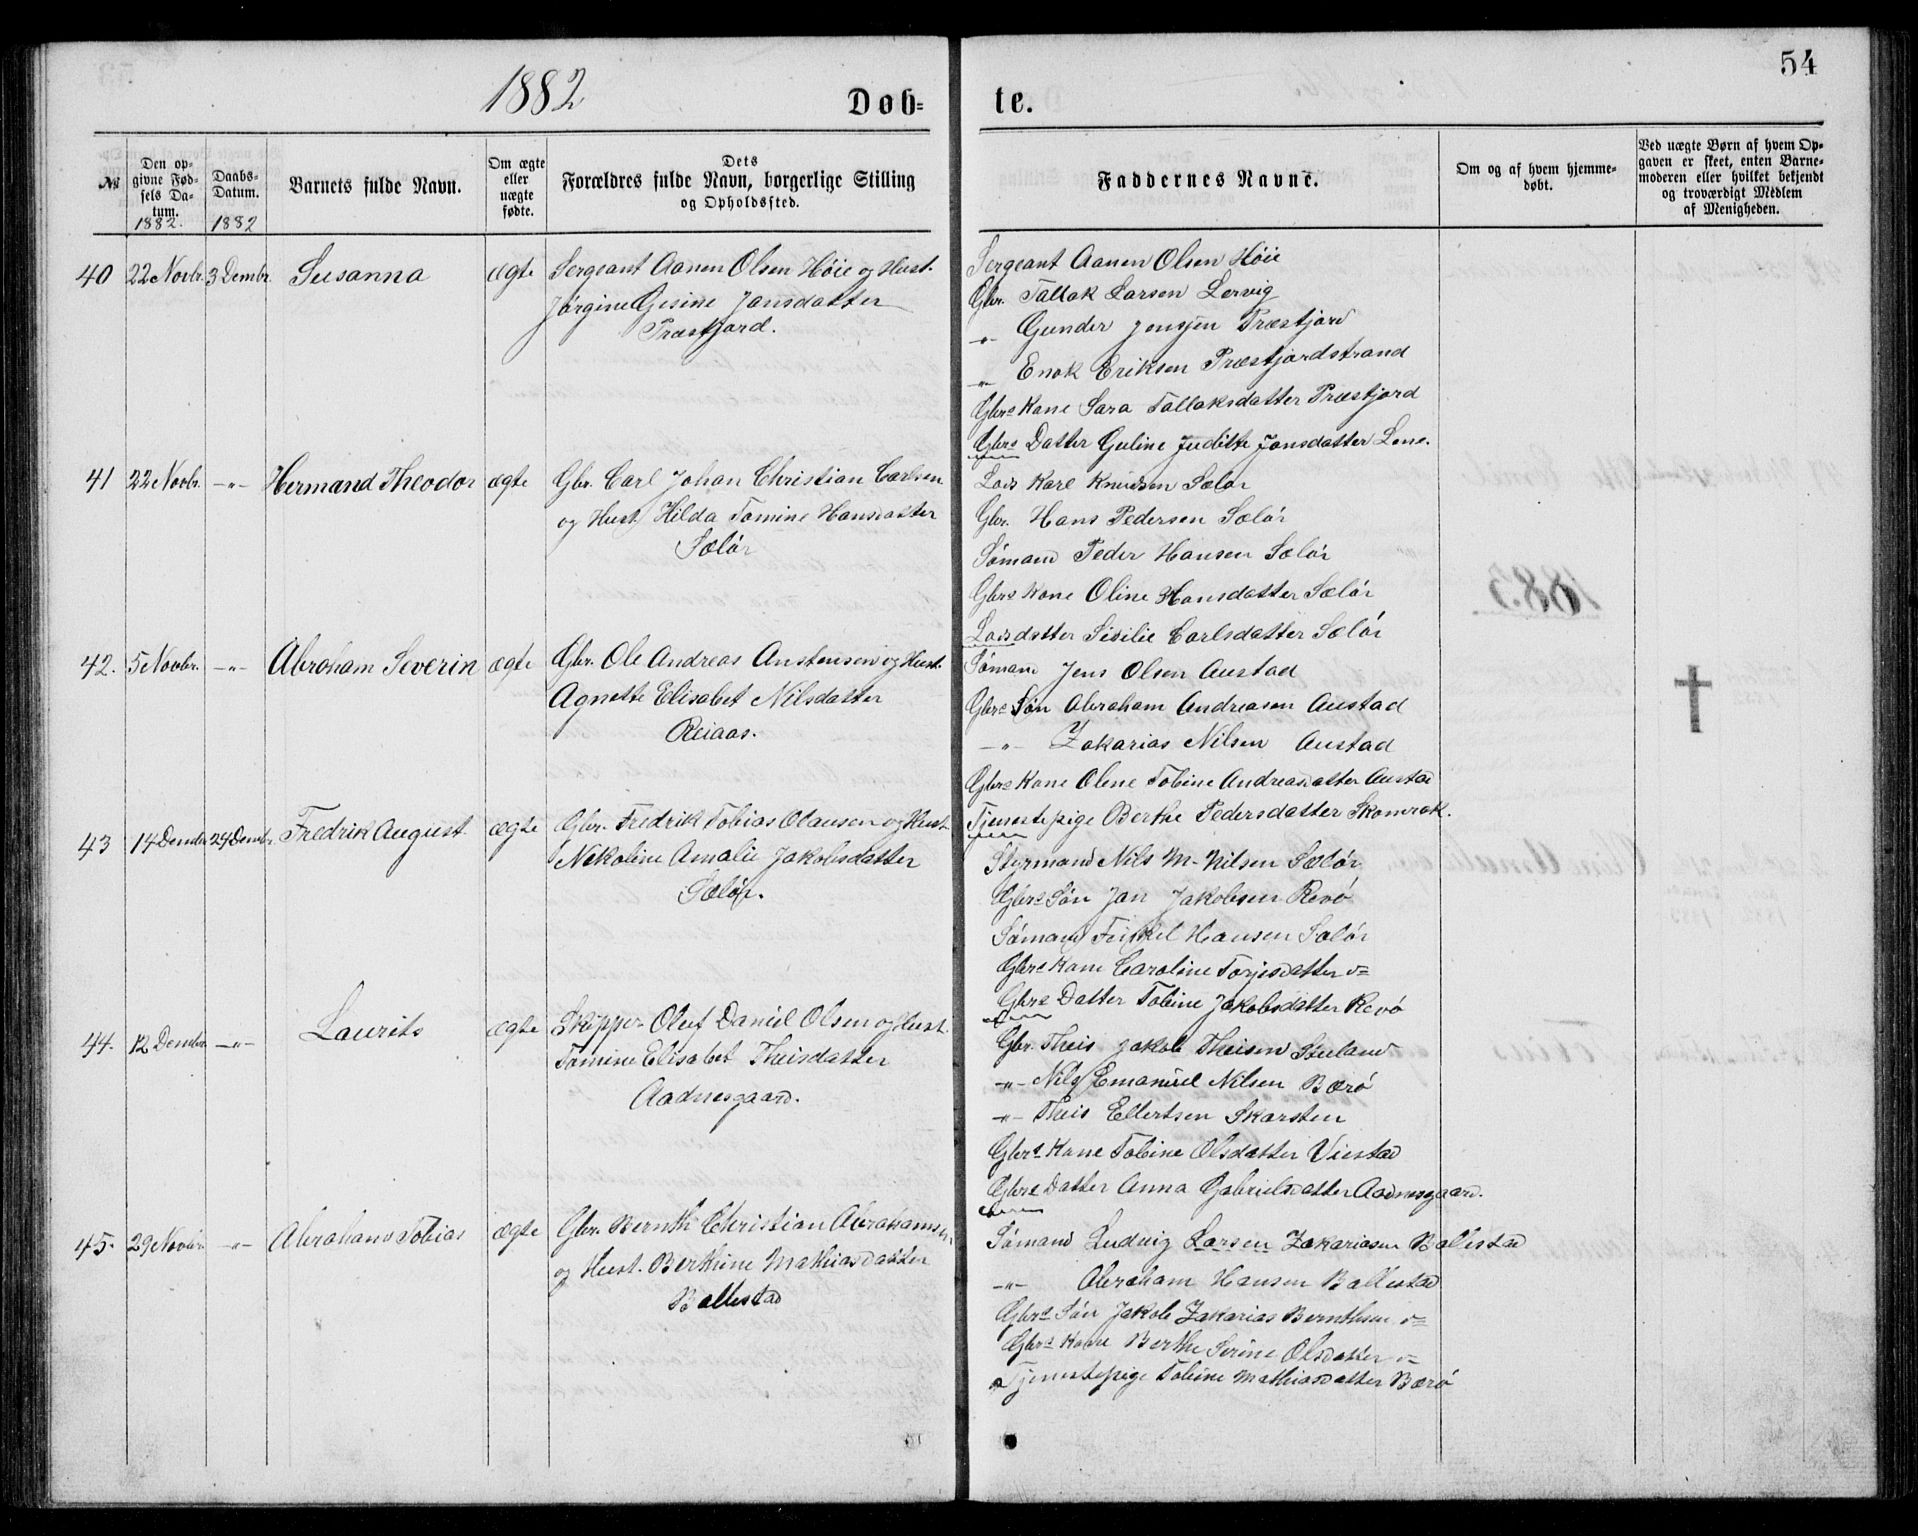 54
1882
Døb-
te.
№
Den op-
givne Fød-
sels Da-
tum.
1882.
Daabs-
Datum.
1882
Barnets fulde Navn.
Om ægte
eller
uægte
fødte.
Dets
Forældres fulde Navn, borgerlige Stilling
og Opholdssted.
Faddernes Navne.
Om og af hvem hjemme-
døbt.
Ved uægte Børn af hvem Op-
gaven er skeet, enten Barne-
moderen eller hvilket bekjendt
og troværdigt Medlem
af Menigheden.
40 22 Novbr. 3 Dembr. Susanna ægte Sergeant Aanen Olsen Høie og Hust.
Jørgine Gesine Jansdatter
Præstfjord.
Sergeant Aanen Olsen Høie
Gbr. Tallak Larsen Lervig
-"- Gunder Jensen Præstfjord
" Enok Eriksen Præstfjordstrand
Gbrs Kone Sara Tallaksdatter Præstfjord
Gbrs Datter Guline Juditte Jonsdatter Lene.
41 22 Novbr. -"- Hermand Theodor ægte Gbr. Carl Johan Christian Carlsen
og Hust. Hilda Tomine Hansdatter
Sælør
Lods Karl Knudsen Sælør
Gbr. Hans Pedersen Sælør
Sømand Peder Hansen Sælør
Gbrs Kone Oline Hansdatter Sælør
Lodsdatter Sisilie Carlsdatter Sælør
42. 5 Novbr. -"- Abraham Severin ægte Gbr. Ole Andreas Anstensen og Hust.
Agnette Elisabet Nilsdatter
Reiaas.
Sømand Jens Olsen Austad
Gbrs Søn Abraham Andreasen Austad
-"- Zakarias Nilsen Austad
Gbrs Kone Olene Tobine Andreasdatter Austad
Tjenestepige Berthe Pedersdatter Skomrak.
43 14 Dembr. 24 Dembr. Fredrik August ægte Gbr. Fredrik Tobias Olausen og Hust.
Nikoline Amalie Jakobsdatter
Sælør.
Styrmand Nils M. Nilsen Sælør
Gbrs Søn Jan Jakobsen Revø
Sømand Hansen Sælør
Gbrs Kone Caroline Torjesdatter
Gbrs Datter Tobine Jakobsdatter Revø
44. 12 Dembr. -"- Laurits ægte Skipper Oluf Daniel Olsen og Hust.
Tomine Elisabet Theisdatter
Aadnesgaard.
Gbr. Theis Jakob Theisen Stuland
-"- Nils Emanuel Nilsen Bærø
-"- Theis Ellertsen Skarsten
Gbrs Kone Tobine Olsdatter Viestad
Gbrs Datter Anna Gabrielsdatter Aadnesgaard.
45. 29 Novbr. -"- Abraham Tobias ægte Gbr. Bernth Christian Abrahamsen
og Hust. Berthine Mathiasdatter
Ballestad
Sømand Ludvig Larsen Zakariasen Ballestad
-"- Abraham Hansen Ballestad
Gbrs Søn Jakob Zakarias Bernthsen
Gbrs Kone Berthe Serine Olsdatter
Tjenestepige Tobine Mathiasdatter Bærø